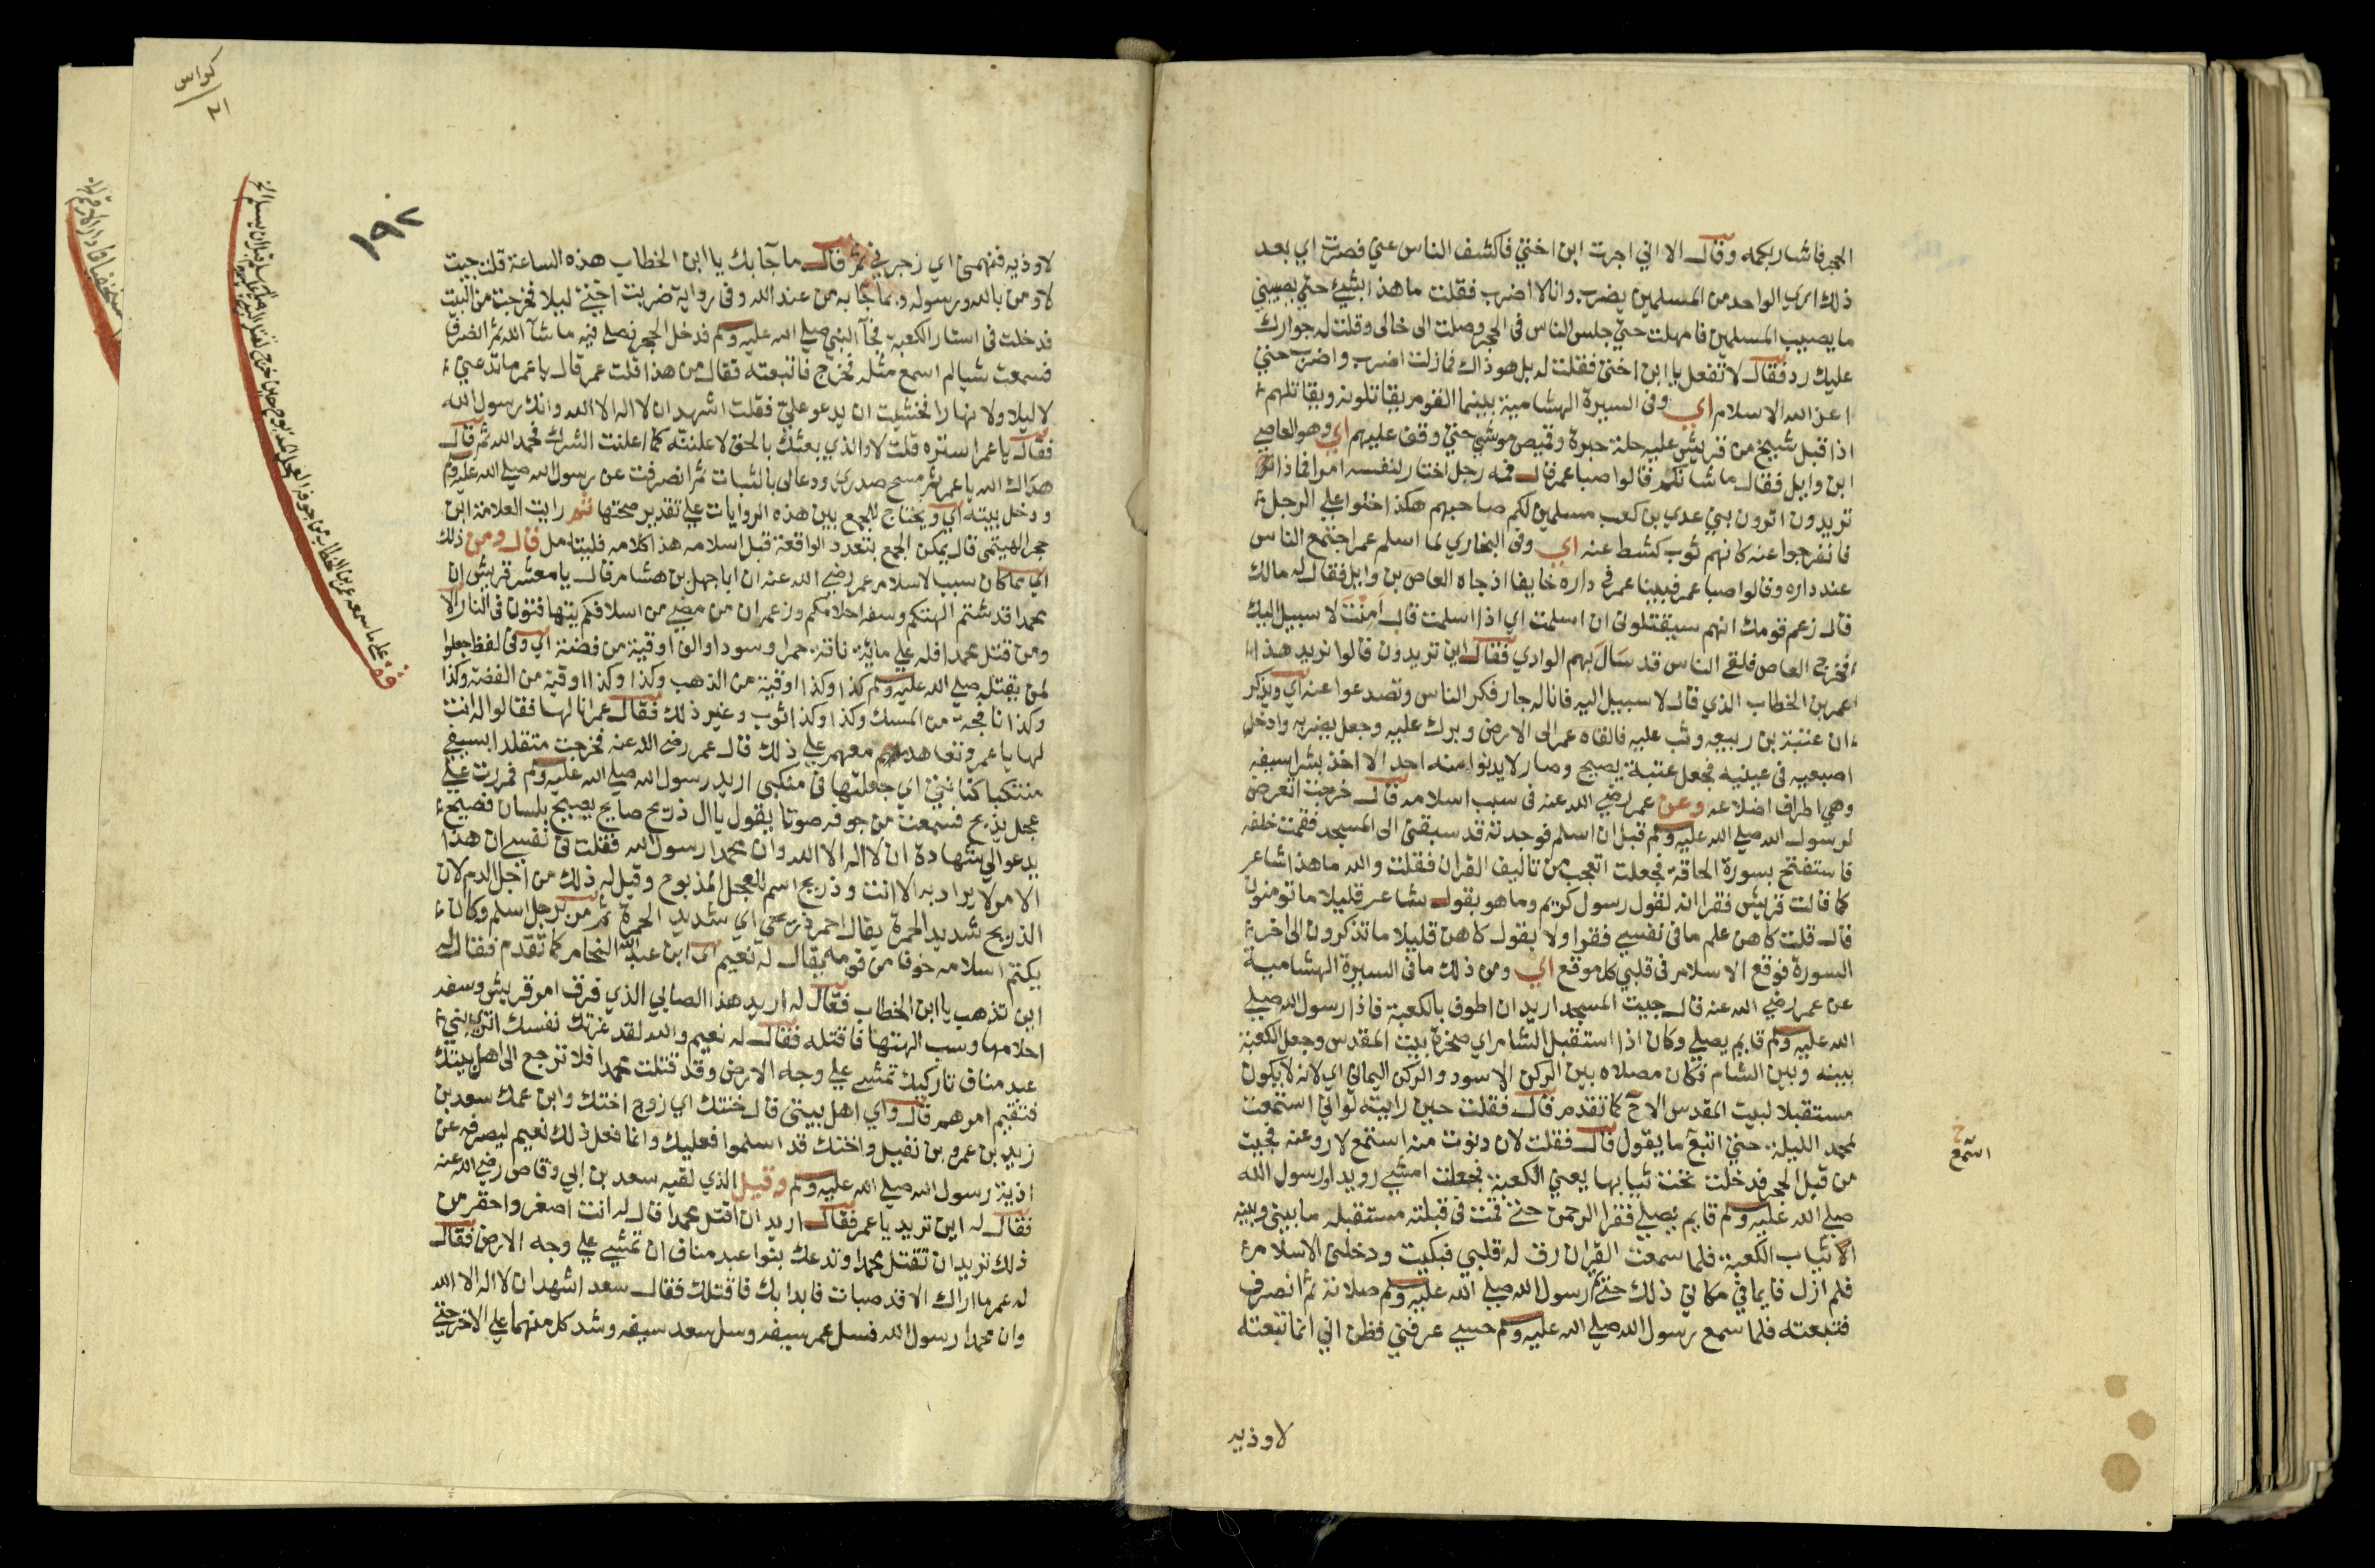 الحجر فاشار بكمه وقال الا اني اجرت ابن اختي فاكشف الناس عني فصرت اي بعد
ذلك اري الواحد من المسلمين يضرب وانا لا اضرب فقلت ما هذا بشيء حتي يصيبني
ما يصيب المسلمين فامهلت حتي جلس الناس في الحجر وصلت الي خالي وقلت له جوارك
عليك رد فقال لا تفعل يا ابن اختي فقلت له بل هو ذاك فما زلت اضرب واضرب حتي
اعز الله الاسلام اي وفي السيرة الهشامية بينما القوم يقاتلونه ويقاتلهم
اذ اقبل شيخ من قريش عليه حلة حبرة وقميص موشي حتي وقف عليهم اي وهو العاص
ابن وايل فقال ما شانكم قالوا صبا عمر قال فمه رجل اختار لنفسه امرا فماذا
تريدون اترون بني عدي بن كعب مسلمين لكم صاحبهم هكذا خلوا علي الرجل
فانفرجوا عنه كانهم ثوب كشط عنه اي وفي البخاري لما اسلم عمر اجتمع الناس
عند داره وقالوا صبا عمر فبينا عمر في داره خايفا اذ جاه العاص بن وايل فقال له مالك
قال زعم قومك انهم سيقتلوني ان اسلمت اي اذا اسلمت قال امنت لا سبيل اليك
فخرج العاص فلقي الناس قد سال بهم الوادي فقال اين تريدون قالوا نريد هذا
عمر بن الخطاب الذي قال لا سبيل اليه فانا له جار فكر الناس وتصدعوا عنه اي ويذكر
ان عتبة بن ربيعه وثب عليه فالقاه عمر الي الارض وبرك عليه وجعل يضربه وادخل
اصبعيه في عينيه فجعل عتبة يصيح وصار لا يدنوا منه احد الا اخذ بشراسيفه
وهي اطراف اضلاعه وعن عمر رضي الله عنه في سبب اسلامه قال خرجت اتعرض
لرسول الله صلي الله عليه وسلم قبل ان اسلم فوجدته قد سبقني الي المسجد فقمت خلفه
فاستفتح بسورة الحاقة فجعلت اتعجب من تاليف القران فقلت والله ما هذا شاعر
كما قالت قريش فقرا انه لقول رسول كريم وما هو بقول شاعر قليلا ما تومنون
قال قلت كاهن علم ما في نفسي فقرا ولا بقول كاهن قليلا ما تذكرون الي اخر
السورة فوقع الاسلام في قلبي كل موقع اي ومن ذلك ما في السيرة الهشامية
عن عمر رضي الله عنه قال جيت المسجد اريد ان اطوف بالكعبة فاذا رسول الله صلي
الله عليه وسلم قايم يصلي وكان اذا استقبل الشام اي صخرة بيت المقدس وجعل الكعبة
بينه وبين الشام فكان مصلاه بين الركن الاسود والركن اليماني اي لانه لا يكون
مستقبلا لبيت المقدس الا ح كما تقدم قال فقلت حين رايته لو اني استمعت
لمحمد الليلة حتي اتبع ما يقول قال فقلت لان دنوت منه استمع لاروعنه فجيت
من قبل الحجر فدخلت تحت ثيابها يعني الكعبة فجعلت امشي رويدا ورسول الله
صلي الله عليه وسلم قايم يصلي فقرا الرحمن حتي قمت في قبلته مستقبله ما بيني وبينه
الا ثياب الكعبة فلما سمعت القران رق له قلبي فبكيت ودخلني الاسلام
فلم ازل قايما في مكاني ذلك حتي رسول الله صلي الله عليه وسلم صلاته ثم انصرف
فتبعته فلما سمع رسول الله صلي الله عليه وسلم حسي عرفني فظن اني انما تبعته
استمع
لاوذيه
كراس
٢١
١٩٧
لاوذيه فنهمني اي زجرني ثم قال ما جا بك يا ابن الخطاب هذه الساعة قلت جيت
لاومن بالله ورسوله وبما جا به من عند الله وفي رواية ضربت اختي ليلا فخرجت من البيت
فدخلت في استار الكعبة فجا النبي صلي الله عليه وسلم فدخل الحجر فصلي فيه ما شا الله ثم انصرف
فسمعت شيا لم اسمع مثله فخرج فاتبعته فقال من هذا قلت عمر قال يا عمر ما تدعني
لا ليلا ولا نهارا فخشيت ان يدعو علي فقلت اشهد ان لا اله الا الله وانك رسول الله
فقال يا عمر استره قلت لا والذي بعثك بالحق لاعلننه كما اعلنت الشرك فحمد الله ثم قال
هداك الله يا عمر ثم مسح صدري ودعا لي بالثبات ثم انصرفت عن رسول الله صلي الله عليه وسلم
ودخل بيته اي ويحتاج للجمع بين هذه الروايات علي تقدير صحتها ثم رايت العلامة ابن
حجر الهيتمي قال يمكن الجمع بتعدد الواقعة قبل اسلامه هذا كلامه فليتامل قال ومن ذلك
اي مما كان سببا لاسلام عمر رضي الله عنه ان ابا جهل بن هشام قال يا معشر قريش ان
محمدا قد شتم الهتكم وسفه احلامكم وزعم ان من مضي من اسلافكم يتهافتون في النار الا
ومن قتل محمدا فله علي ماية ناقة حمرا وسودا والف اوقية من فضة اي وفي لفظ جعلوا
لمن يقتله صلي الله عليه وسلم كذا وكذا اوقية من الذهب وكذا وكذا اوقية من الفضة وكذا
وكذا نافجة من المسك وكذا وكذا ثوب وغير ذلك فقال عمر انا لها فقالوا له انت
لها يا عمر وتعاهد معهم علي ذلك قال عمر رضي الله عنه فخرجت متقلدا بسيفي
متنكبا كنانتي اي جعلتها في منكبي اريد رسول الله صلي الله عليه وسلم فمررت علي
عجل يذبح فسمعت من جوفه صوتا يقول يا ال ذريح صايح يصيح بلسان فصيح
يدعو الي شهادة ان لا اله الا الله وان محمدا رسول الله فقلت في نفسي ان هذا
الامر لا يراد به الا انت وذريح اسم للعجل المذبوح وقيل له ذلك من اجل الدم لان
الذريح شديد الحمرة يقال احمر ذريحي اي شديد الحمرة ثم مر برجل اسلم وكان
يكتم اسلامه خوفا من قومه يقال له نعيم اي ابن عبد الله النحام كما تقدم فقال له
اين تذهب يا ابن الخطاب فقال له اريد هذا الصابي الذي فرق امر قريش وسفه
احلامها وسب الهتها فاقتله فقال له نعيم والله لقد غرتك نفسك اتري بني
عبد مناف تاركيك تمشي علي وجه الارض وقد قتلت محمدا فلا ترجع الي اهل بيتك
فتقيم امرهم قال واي اهل بيتي قال ختنك اي زوج اختك وابن عمك سعد بن
زيد بن عمرو بن نفيل واختك قد اسلموا فعليك وانما فعل ذلك نعيم ليصرفه عن
اذية رسول الله صلي الله عليه وسلم وقيل الذي لقيه سعد بن ابي وقاص رضي الله عنه
فقال له اين تريد يا عمر فقال اريد ان اقتل محمدا قال له انت اصغر واحقر من
ذلك تريد ان تقتل محمدا وتدعك بنوا عبد مناف ان تمشي علي وجه الارض فقال
له عمر ما اراك الا قد صبات فابدا بك فاقتلك فقال سعد اشهد ان لا اله الا الله
وان محمدا رسول الله فسل عمر سيفه وسل سعد سيفه وشد كل منهما علي الاخر حتي
قف علي ما سمعه عمر بن الخطاب من جوف العجل المذبوح حين خرج لقتل النبي صلي الله عليه وسلم قبل ان يسلم الخ